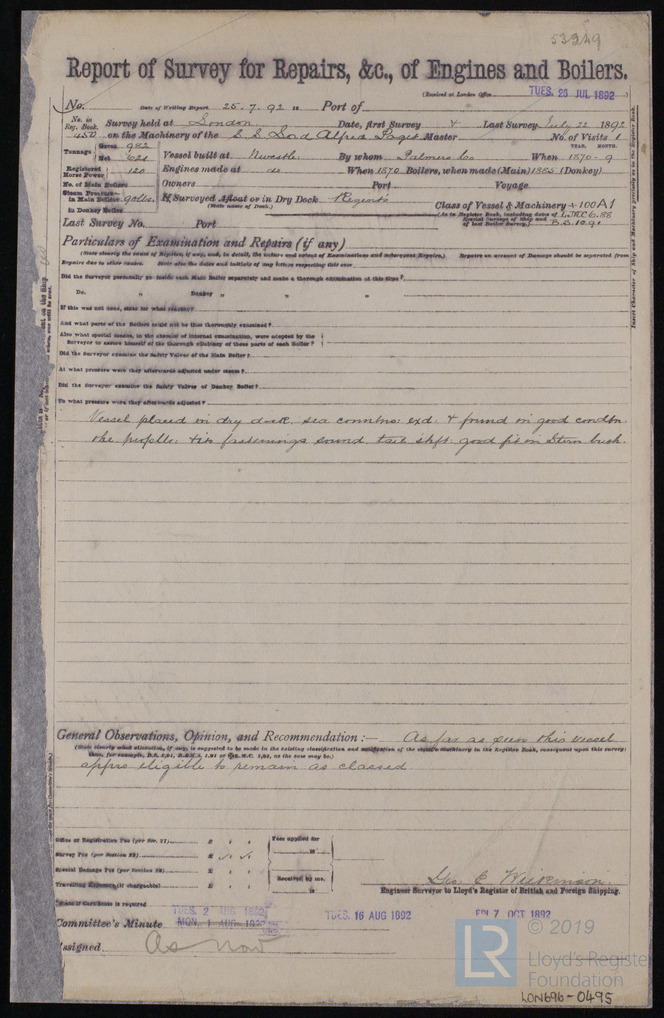 53349
Report of Survey for Repairs, &c., of Engines and Boilers.
(Received at London Office TUES. 26 JUL 1892
No. Date of Writing Report 25.7.92 18 Port of
No. in Reg. Book. Survey held at London Date, first Survey & Last Survey July 22 1892
450 on the Machinery of the S.S. Lord Alfred Paget Master No. of Visits 1
Tonnage Gross 982 Net 621 Vessel built at Newcastle By whom Palmers Co When 1870-9
YEAR. MONTH.
Registered Horse Power 120 Engines made at do When 1870 Boilers, when made (Main) 1885 (Donkey)
No. of Main Boilers Owners Port Voyage
Steam Pressure in Main Boilers 90lbs. If Surveyed Afloat or in Dry Dock Regents Class of Vessel & Machinery + 100A1
(State name of Dock.) (As in Register Book, including dates of Special Surveys of Ship and of last Boiler Survey.) LMC 6.88
in Donkey Boiler B.S. 10.91
Last Survey No. Port
Particulars of Examination and Repairs (if any)
(State clearly the cause of Repairs, if any, and, in detail, the nature and extent of Examinations and subsequent Repairs.) Repairs on account of Damage should be separated from
Repairs due to other causes. State also the dates and initials of any letters respecting this case
Did the Surveyor personally go inside each Main Boiler separately and make a thorough examination at this time?
Do. „ Donkey „ „ „
If this was not done, state for what reasons?
And what parts of the Boilers could not be thus thoroughly examined?
Also what special means, in the absence of internal examination, were adopted by the
Surveyor to assure himself of the thorough efficiency of those parts of each Boiler?
Did the Surveyor examine the Safety Valves of the Main Boiler?
At what pressure were they afterwards adjusted under steam?
Did the Surveyor examine the Safety Valves of Donkey Boiler?
To what pressure were they afterwards adjusted?
Vessel placed in dry dock, sea conntns: exd. & found in good condtn.
the propller: & its fastenings sound, tail shft: good fit in stern bush.
General Observations, Opinion, and Recommendation:— As far as seen this vessel
(State clearly what alteration, if any, is suggested to be made in the existing classification and notification of the vessel's machinery in the Register Book, consequent upon this survey;
apprs eligible to remain as classed
Office or Registration Fee (per Sec. 27) £
Survey Fee (per Section 28) £
Special Damage Fee (per Section 28) £
Travelling Expenses (if chargeable) £
Fees applied for 18
Received by me, 18
Geo. C. Wilkinson.
Engineer Surveyor to Lloyd's Register of British and Foreign Shipping.
State if Certificate is required
TUES. 2 AUG 1892
Committee's Minute MON. 1 AUG 1892 TUES. 16 AUG 1892 FRI. 7 OCT 1892
Assigned As now
Insert Character of Ship and Machinery precisely as in the Register Book
LR © 2019
Lloyd's Register
Foundation
LON696-0495